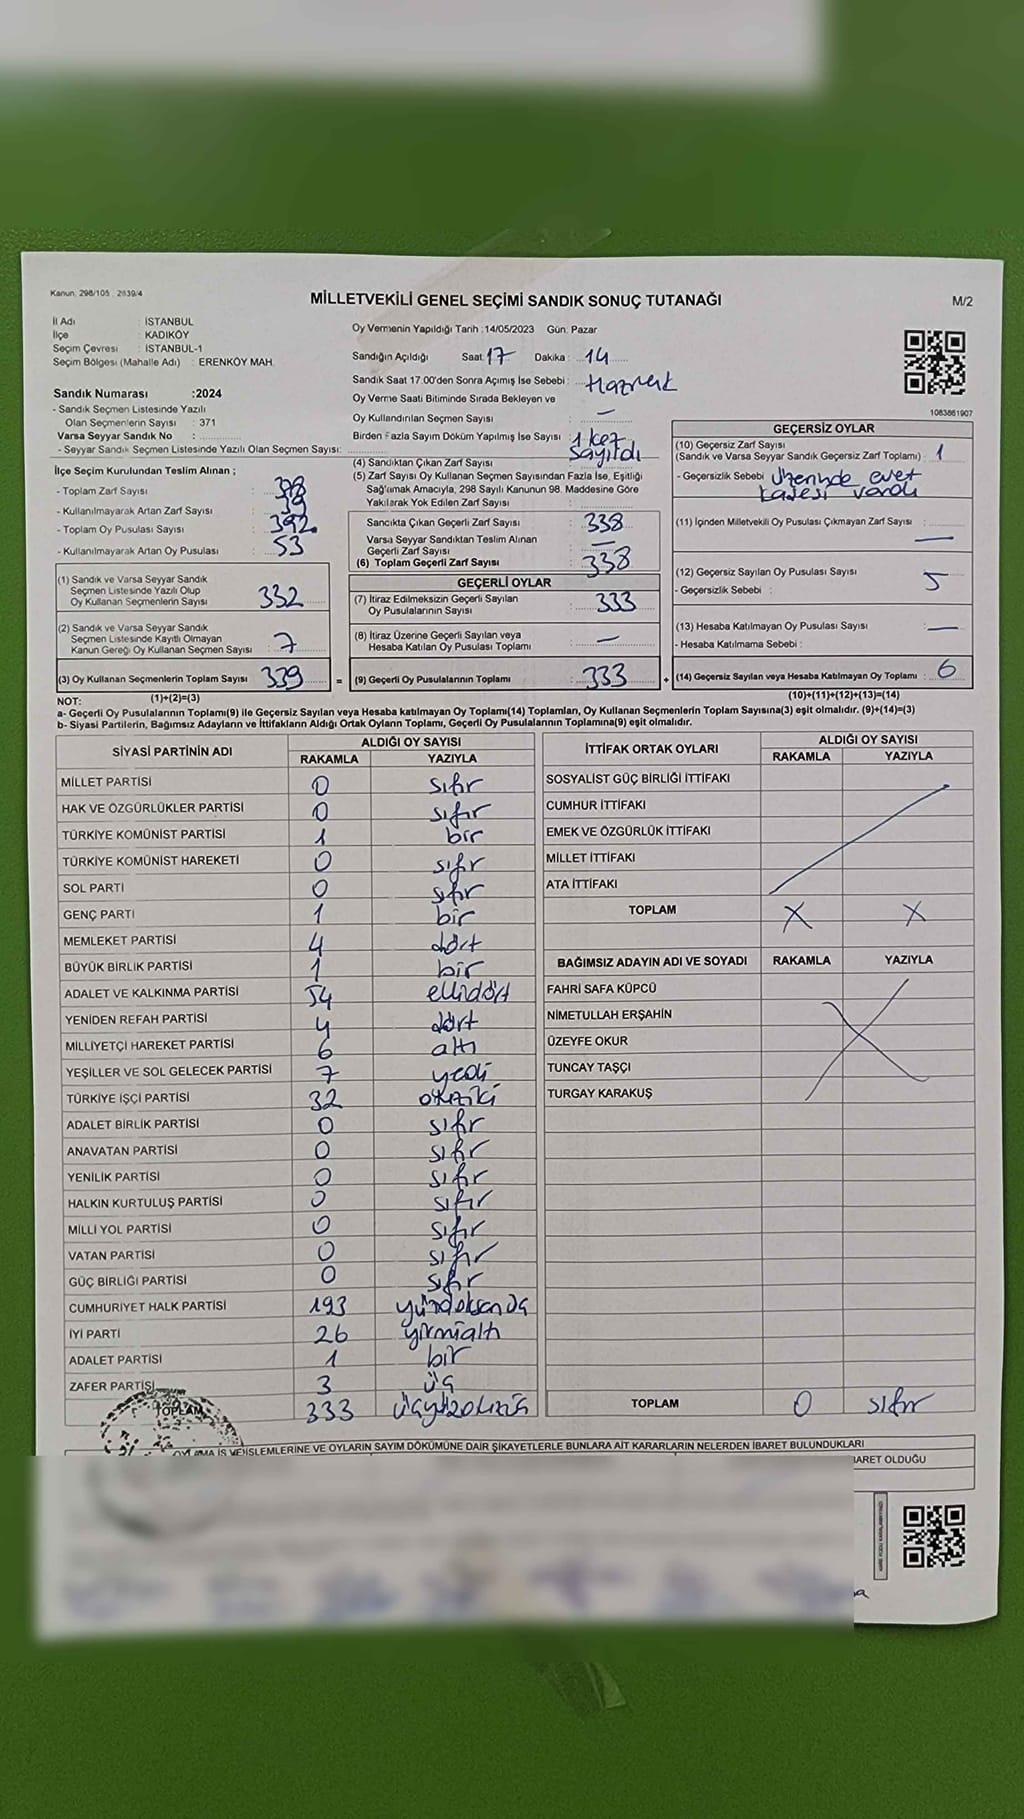 Kanun: 298/105 , 2839/4
MİLLETVEKİLİ GENEL SEÇİMİ SANDIK SONUÇ TUTANAĞI
M/2
İl Adı : İSTANBUL
İlçe : KADIKÖY
Seçim Çevresi : İSTANBUL-1
Seçim Bölgesi (Mahalle Adı) : ERENKÖY MAH.
Oy Vermenin Yapıldığı Tarih :14/05/2023 Gün: Pazar
Sandığın Açıldığı Saat 17 Dakika : 14
Sandık Saat 17.00'den Sonra Açımış İse Sebebi :
Oy Verme Saati Bitiminde Sırada Bekleyen ve
Oy Kullandırılan Seçmen Sayısı : —
Birden Fazla Sayım Döküm Yapılmış İse Sayısı : 1 kez sayıldı
1083861907
Sandık Numarası :2024
- Sandık Seçmen Listesinde Yazılı
Olan Seçmenlerin Sayısı : 371
Varsa Seyyar Sandık No :
- Seyyar Sandık Seçmen Listesinde Yazılı Olan Seçmen Sayısı:
İlçe Seçim Kurulundan Teslim Alınan ;
- Toplam Zarf Sayısı :
- Kullanılmayarak Artan Zarf Sayısı :
- Toplam Oy Pusulası Sayısı : 392
- Kullanılmayarak Artan Oy Pusulası : 53
(1) Sandık ve Varsa Seyyar Sandık
Seçmen Listesinde Yazılı Olup
Oy Kullanan Seçmenlerin Sayısı : 332
(2) Sandık ve Varsa Seyyar Sandık
Seçmen Listesinde Kayıtlı Olmayan
Kanun Gereği Oy Kullanan Seçmen Sayısı : 7
(3) Oy Kullanan Seçmenlerin Toplam Sayısı : 339
(4) Sandıktan Çıkan Zarf Sayısı :
(5) Zarf Sayısı Oy Kullanan Seçmen Sayısından Fazla İse, Eşitliği
Sağlamak Amacıyla, 298 Sayılı Kanunun 98. Maddesine Göre
Yakılarak Yok Edilen Zarf Sayısı :
Sandıkta Çıkan Geçerli Zarf Sayısı : 338
Varsa Seyyar Sandıktan Teslim Alınan
Geçerli Zarf Sayısı : —
(6) Toplam Geçerli Zarf Sayısı : 338
GEÇERLİ OYLAR
(7) İtiraz Edilmeksizin Geçerli Sayılan
Oy Pusulalarının Sayısı : 333
(8) İtiraz Üzerine Geçerli Sayılan veya
Hesaba Katılan Oy Pusulası Toplamı : —
= (9) Geçerli Oy Pusulalarının Toplamı : 333
GEÇERSİZ OYLAR
(10) Geçersiz Zarf Sayısı
(Sandık ve Varsa Seyyar Sandık Geçersiz Zarf Toplamı) : 1
- Geçersizlik Sebebi : Üzerinde evet
kaşesi vardı
(11) İçinden Milletvekili Oy Pusulası Çıkmayan Zarf Sayısı : —
(12) Geçersiz Sayılan Oy Pusulası Sayısı : 5
- Geçersizlik Sebebi :
(13) Hesaba Katılmayan Oy Pusulası Sayısı : —
- Hesaba Katılmama Sebebi :
+ (14) Geçersiz Sayılan veya Hesaba Katılmayan Oy Toplamı : 6
NOT: (1)+(2)=(3) (10)+(11)+(12)+(13)=(14)
a- Geçerli Oy Pusulalarının Toplamı(9) ile Geçersiz Sayılan veya Hesaba katılmayan Oy Toplamı(14) Toplamları, Oy Kullanan Seçmenlerin Toplam Sayısına(3) eşit olmalıdır. (9)+(14)=(3)
b- Siyasi Partilerin, Bağımsız Adayların ve İttifakların Aldığı Ortak Oyların Toplamı, Geçerli Oy Pusulalarının Toplamına(9) eşit olmalıdır.
SİYASİ PARTİNİN ADI ALDIĞI OY SAYISI
RAKAMLA YAZIYLA
MİLLET PARTİSİ 0 sıfır
HAK VE ÖZGÜRLÜKLER PARTİSİ 0 sıfır
TÜRKİYE KOMÜNİST PARTİSİ 1 bir
TÜRKİYE KOMÜNİST HAREKETİ 0 sıfır
SOL PARTİ 0 sıfır
GENÇ PARTİ 1 bir
MEMLEKET PARTİSİ 4 dört
BÜYÜK BİRLİK PARTİSİ 1 bir
ADALET VE KALKINMA PARTİSİ 54 ellidört
YENİDEN REFAH PARTİSİ 4 dört
MİLLİYETÇİ HAREKET PARTİSİ 6 altı
YEŞİLLER VE SOL GELECEK PARTİSİ 7 yedi
TÜRKİYE İŞÇİ PARTİSİ 32 otuziki
ADALET BİRLİK PARTİSİ 0 sıfır
ANAVATAN PARTİSİ 0 sıfır
YENİLİK PARTİSİ 0 sıfır
HALKIN KURTULUŞ PARTİSİ 0 sıfır
MİLLİ YOL PARTİSİ 0 sıfır
VATAN PARTİSİ 0 sıfır
GÜÇ BİRLİĞİ PARTİSİ 0 sıfır
CUMHURİYET HALK PARTİSİ 193
İYİ PARTİ 26 yirmialtı
ADALET PARTİSİ 1 bir
ZAFER PARTİSİ 3 üç
TOPLAM 333
İTTİFAK ORTAK OYLARI ALDIĞI OY SAYISI
RAKAMLA YAZIYLA
SOSYALİST GÜÇ BİRLİĞİ İTTİFAKI
CUMHUR İTTİFAKI
EMEK VE ÖZGÜRLÜK İTTİFAKI
MİLLET İTTİFAKI
ATA İTTİFAKI
TOPLAM X X
BAĞIMSIZ ADAYIN ADI VE SOYADI RAKAMLA YAZIYLA
FAHRİ SAFA KÜPCÜ
NİMETULLAH ERŞAHİN
ÜZEYFE OKUR
TUNCAY TAŞÇI
TURGAY KARAKUŞ
TOPLAM 0 sıfır
İŞLEMLERİNE VE OYLARIN SAYIM DÖKÜMÜNE DAİR ŞİKAYETLERLE BUNLARA AİT KARARLARIN NELERDEN İBARET BULUNDUKLARI
İBARET OLDUĞU